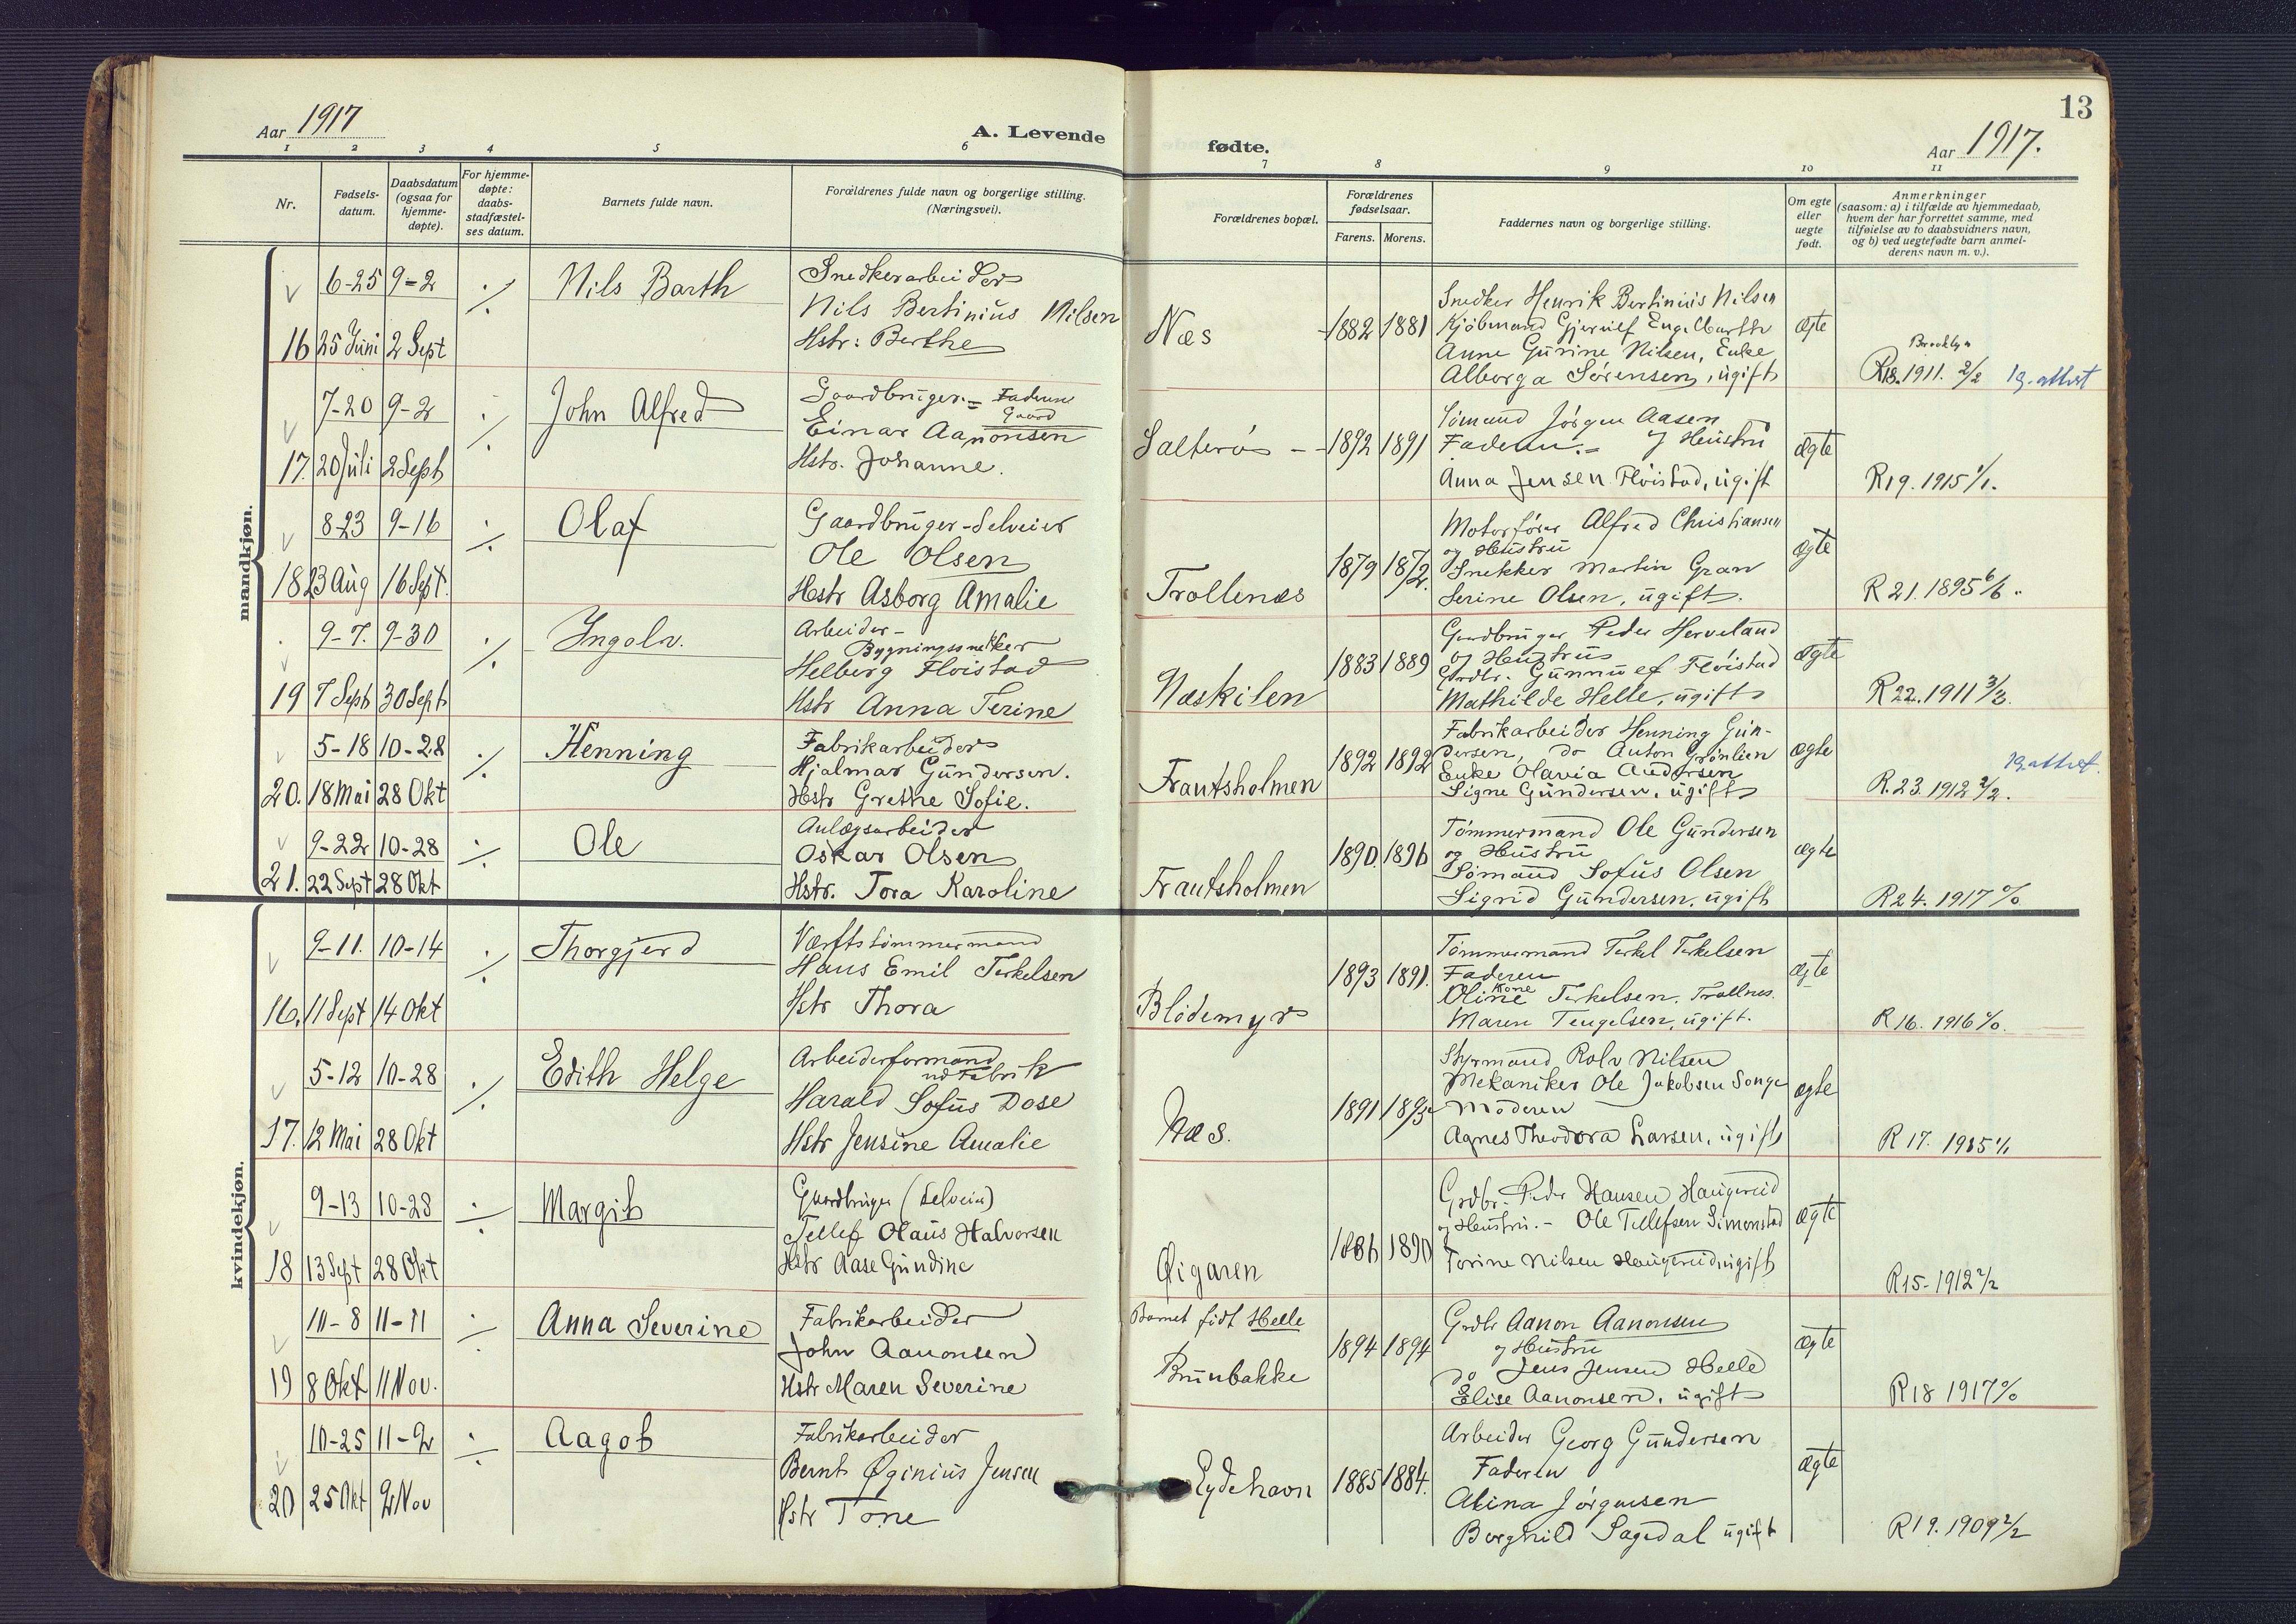 Aar 1917
A. Levende
fødte.
Aar 1917.
13
1 2 3 4 5 6 7 8 9 10 11
Nr.
Fødsels-
datum.
Daabsdatum
(ogsaa for
hjemme-
døpte).
For hjemme-
døpte:
daabs-
stadfæstel-
ses datum.
Barnets fulde navn.
Forældrenes fulde navn og borgerlige stilling.
(Næringsvei).
Forældrenes bopæl.
Forældrenes
fødselsaar.
Farens. Morens.
Faddernes navn og borgerlige stilling.
Om egte
eller
uegte
født.
Anmerkninger
(saasom: a) i tilfælde av hjemmedaab,
hvem der har forrettet samme, med
tilføielse av to daabsvidners navn,
og b) ved uegtefødte barn anmel-
derens navn m. v.).
mandkjøn.
16 6-25 9-2
25 Juni 2 Sept
Nils Barth
Snedkerarbeider
Nils Bertinius Nilsen
Hstr: Berthe
Næs
1882 1881
Snedker Henrik Bertinius Nilsen
Kjöbmand Gjerulf Engelbarth
Anne Gurine Nilsen, Enke
Alborga Sörensen, ugift
ægte
Brooklyn
R18. 1911. 2/2
17. 7-20 9-2
20 Juli 2 Sept
John Alfred
Gaardbruger - Faderens
Gaard
Einar Aanonsen
Hstr. Johanne.
Salterö
1892 1891
Sömand Jörgen Aasen
Faderen og Hustru
Anna Jensen Flöistad, ugift
ægte
R19. 1915 1/1.
18 8-23 9-16
23 Aug 16 Sept.
Olaf
Gaardbruger-Selveier
Ole Olsen
Hstr Asborg Amalie
Trollenæs
1879 1872
Motorförer Alfred Christiansen
og Hustru
Snekker Martin Gran
Serine Olsen, ugift.
ægte
R 21. 1895 6/6.
19 9-7. 9-30
7 Sept 30 Sept
Ingolv.
Arbeider-
Bygningssnekker
Helberg Flöistad
Hstr Anna Terine
Næskilen
1883 1889
Gardbruger Peder Herveland
og Hustru
Grdbr. Gunnulf Flöistad
Mathilde Helle, ugift
ægte
R22. 1911 3/3.
20. 5-18 10-28
18 Mai 28 Okt
Henning
Fabrikarbeider
Hjalmar Gundersen.
Hstr Grethe Sofie.
Frautsholmen
1892 1892
Fabrikarbeider Henning Gun-
dersen, do Anton Grönlien
Enke Olavia Andersen
Signe Gundersen, ugift
ægte
R. 23. 1912 2/2.
21. 9-22 10-28
22 Sept 28 Okt
Ole
Anlægsarbeider
Oskar Olsen
Hstr. Tora Karoline
Frautsholmen
1890. 1896
Tömmermand Ole Gundersen
og Hustru
Sömand Sofus Olsen
Sigrid Gundersen. ugift
ægte
R24. 1917 0/0
kvindekjøn.
16. 9-11. 10-14
11 Sept 14 Okt
Thorgjerd
Værftstömmermand
Hans Emil Terkelsen
Hstr Thora
Blödemyr
1893 1891.
Tömmermand Terkel Terkelsen
Faderen
Kone
Oline Terkelsen. Trollnes.
Maren Tengelsen, ugift.
ægte
R 16. 1916 0/0.
17. 5-12 10-28
12 Mai 28 Okt
Edith Helge
Arbeiderformand
ved Fabrik
Harald Sofus Dose
Hstr Jensine Amalie
Næs.
1891 1893
Styrmand Rolv Nilsen
Mekaniker Ole Jakobsen Songe
Moderen
Agnes Theodora Larsen, ugift
ægte
R 17. 1915 1/1
18 9-13 10-28
13 Sept 28 Okt
Margit
Gaardbruger (selveier)
Tellef Olaus Halvorsen
Hstr Aase Gundine
Øigaren
1886 1890
Grdbr. Peder Hansen Haugereid
og Hustru. - Ole Tellefsen Simonstad
Torine Nilsen Haugereid ugift
ægte
R15- 1912 2/2
19 10-8 11-11
8 Okt 11 Nov.
Anna Severine
Fabrikarbeider
John Aanonsen
Hstr Maren Severine
Barnet födt Helle
Brunbakke
1894 1894
Grdbr Aanon Aanonsen
og Hustru
do Jens Jensen Helle
Elise Aanonsen, ugift
ægte
R18 1917 0/0
20 10-25 11-2
25 Okt 2 Nov
Aagot
Fabrikarbeider
Bernt Øginius Jensen
Hstr Tone
Eydehavn
1885 1884.
Arbeider Georg Gundersen
Faderen
Alina Jörgensen
Borghild Sagedal ugift
ægte
R19. 1909 2/2